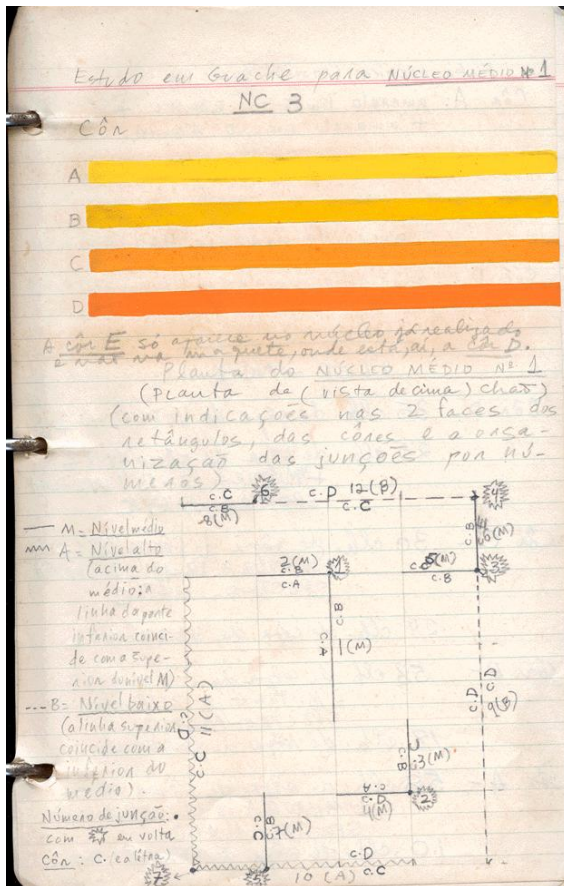 Estudo em Guache para NÚCLEO MÉDIO Nº 1
NC 3
Côr
A
B
C
D
A côr E só aparece no núcleo já realizado
e não na maquete, onde está, aí, a côr D.
Planta do NÚCLEO MÉDIO Nº 1
(Planta de (vista de cima) chão)
(com indicações nas 2 faces dos
retângulos, das côres e a orga-
nização das junções por nú-
meros)
c.C 6 c.D 12(B) 4
c.B c.C
8(M)
M = Nível médio
A = Nível alto
(acima do
médio; a
linha da parte
inferior coinci-
de com a supe-
rior do nível M)
B = Nível baixo
(a linha superior
coincide com a
inferior do
médio).
Número de junção:
com em volta
Côr: C. (e a letra)
c.B
6(M)
2(M) 1 5(M) 3
c.B
c.A c.B
c.B
c.A
1(M)
c.D c.D
9(B)
c.C 11(A)
c.B 3(M)
c.A
c.D 2
4(M)
c.B
7(M)
7 5 c.D
10(A) c.C